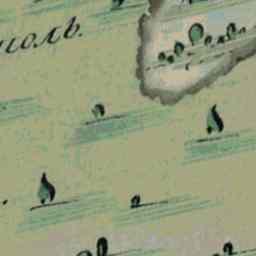 поль.